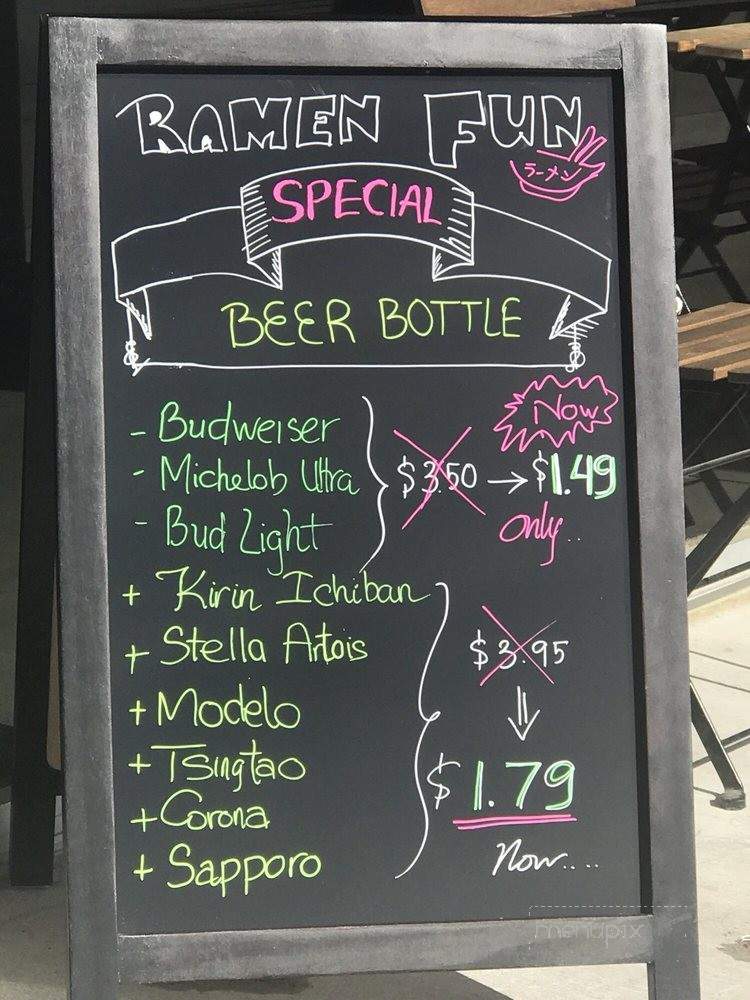 RAMEN FUN
ラーメン
SPECIAL
BEER BOTTLE
- Budweiser
- Michelob Ultra
- Bud Light
$3.50 → $1.49
Now
only..
+ Kirin Ichiban
+ Stella Artois
+ Modelo
+ Tsingtao
+ Corona
+ Sapporo
$3.95
⇓
$1.79
Now....
menupix